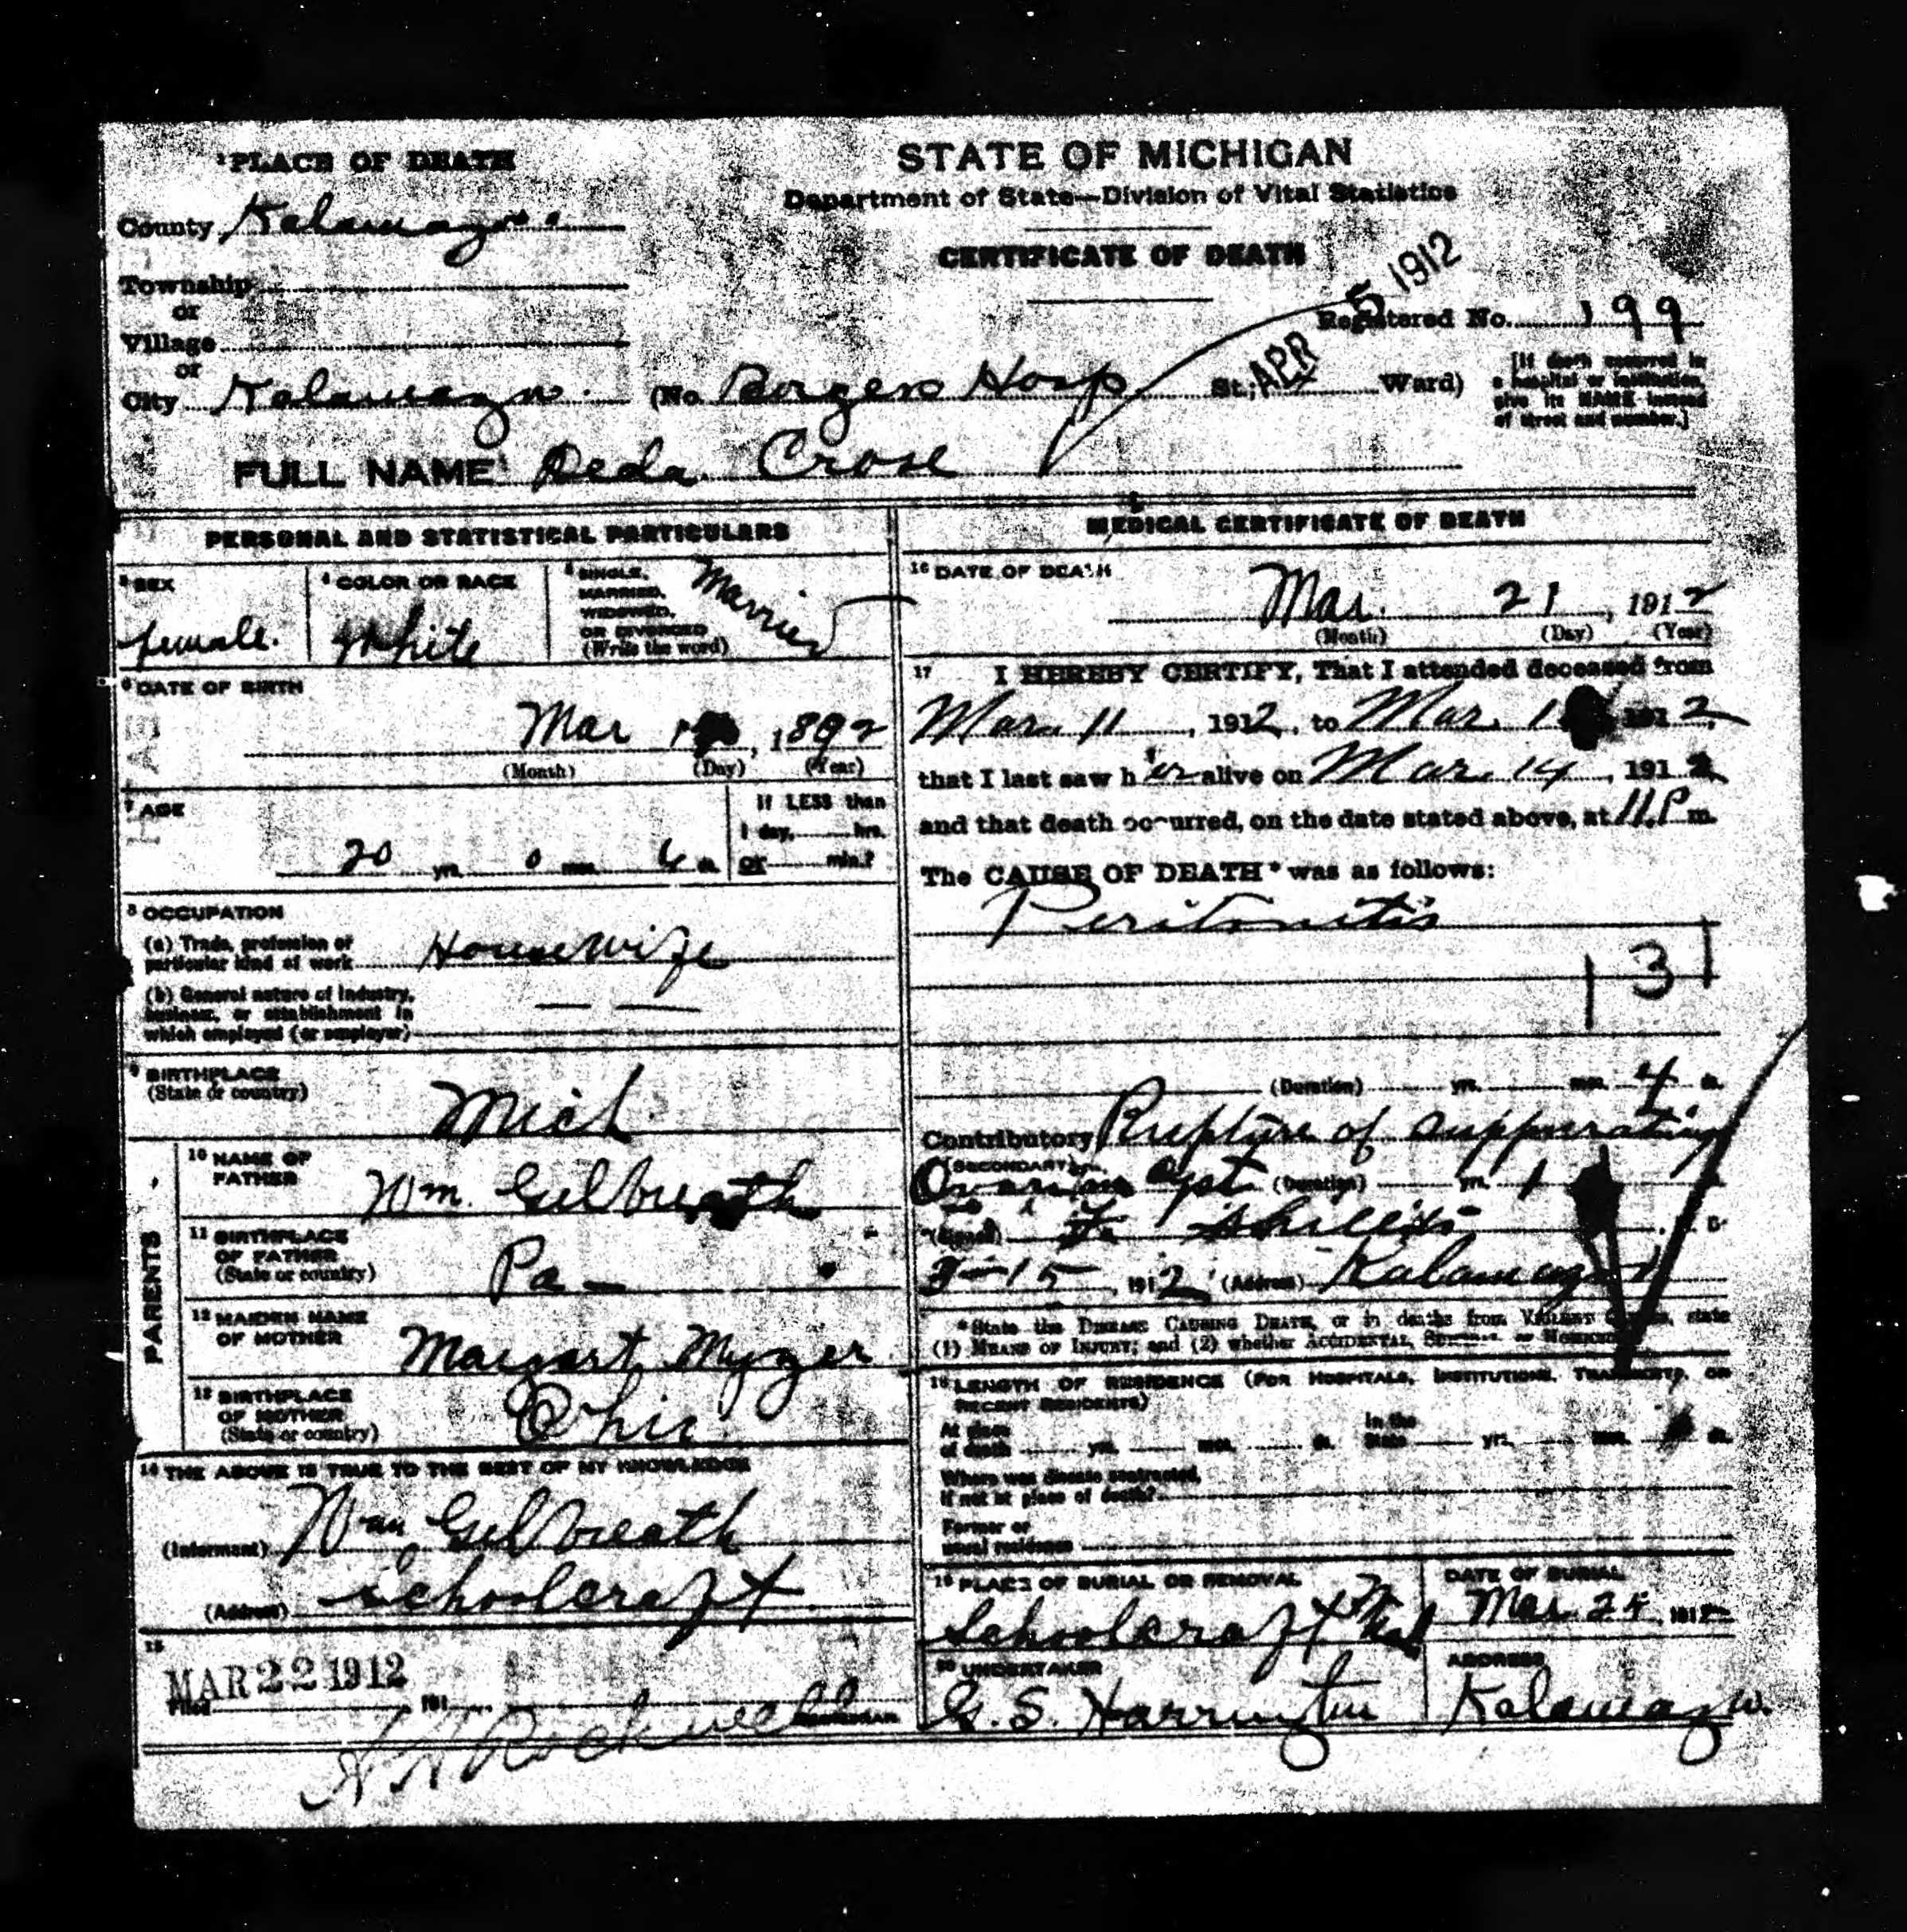 1 PLACE OF DEATH
STATE OF MICHIGAN
Department of State—Division of Vital Statistics
CERTIFICATE OF DEATH
County Kalamazoo
Township
or
Village
or
City Kalamazoo (No. Borgess Hosp St.; Ward)
APR 5 1912
Registered No. 199
[If death occurred in
a hospital or institution,
give its NAME instead
of street and number.]
FULL NAME Deda Crose
PERSONAL AND STATISTICAL PARTICULARS
3 SEX
female.
4 COLOR OR RACE
White
5 SINGLE,
MARRIED,
WIDOWED,
OR DIVORCED
(Write the word)
Married
6 DATE OF BIRTH
Mar , 1892
(Month) (Day) (Year)
7 AGE
20 yrs. 0 mos. 6 ds.
If LESS than
1 day, hrs.
or min.?
8 OCCUPATION
(a) Trade, profession or
particular kind of work Housewife
(b) General nature of industry,
business, or establishment in
which employed (or employer) — —
9 BIRTHPLACE
(State or country)
Mich
PARENTS
10 NAME OF
FATHER
Wm. Gilbreath
11 BIRTHPLACE
OF FATHER
(State or country)
Pa –
12 MAIDEN NAME
OF MOTHER
Margart Myzer
13 BIRTHPLACE
OF MOTHER
(State or country)
Ohio
14 THE ABOVE IS TRUE TO THE BEST OF MY KNOWLEDGE
(Informant) Wm Gilbreath
(Address) Schoolcraft
15
MAR 22 1912
Filed , 191
Rockwell
MEDICAL CERTIFICATE OF DEATH
16 DATE OF DEATH
Mar. 21, 1912
(Month) (Day) (Year)
17 I HEREBY CERTIFY, That I attended deceased from
Mar. 11, 1912, to Mar. 1912,
that I last saw her alive on Mar. 14, 1912
and that death occurred, on the date stated above, at 11.P m.
The CAUSE OF DEATH* was as follows:
Peritonitis
131
(Duration) yrs. mos. 4 ds.
Contributory Rupture of suppurating
(SECONDARY)
Ovarian cyst (Duration) yrs. 1
(Signed)
15, 1912 (Address) Kalamazoo
*State the DISEASE CAUSING DEATH, or in deaths from VIOLENT CAUSES, state
(1) MEANS OF INJURY; and (2) whether ACCIDENTAL, SUICIDAL, or HOMICIDAL
18 LENGTH OF RESIDENCE (FOR HOSPITALS, INSTITUTIONS, TRANSIENTS, OR
RECENT RESIDENTS)
At place
of death yrs. mos. ds.
In the
State yrs. mos. ds.
Where was disease contracted,
if not at place of death?
Former or
usual residence
19 PLACE OF BURIAL OR REMOVAL
Schoolcraft Mich
DATE OF BURIAL
Mar. 24, 1912
20 UNDERTAKER
G. S. Harrington
ADDRESS
Kalamazoo.